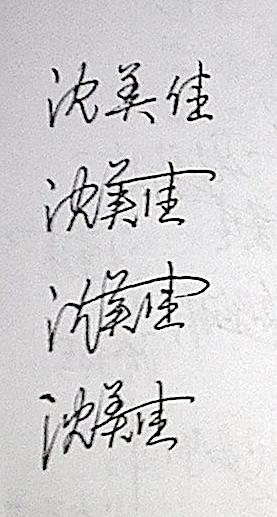 沈美佳
沈美佳
沈美佳
沈美佳